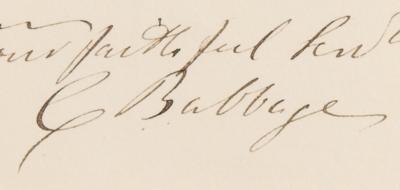 Your faithful Serv^t
C Babbage